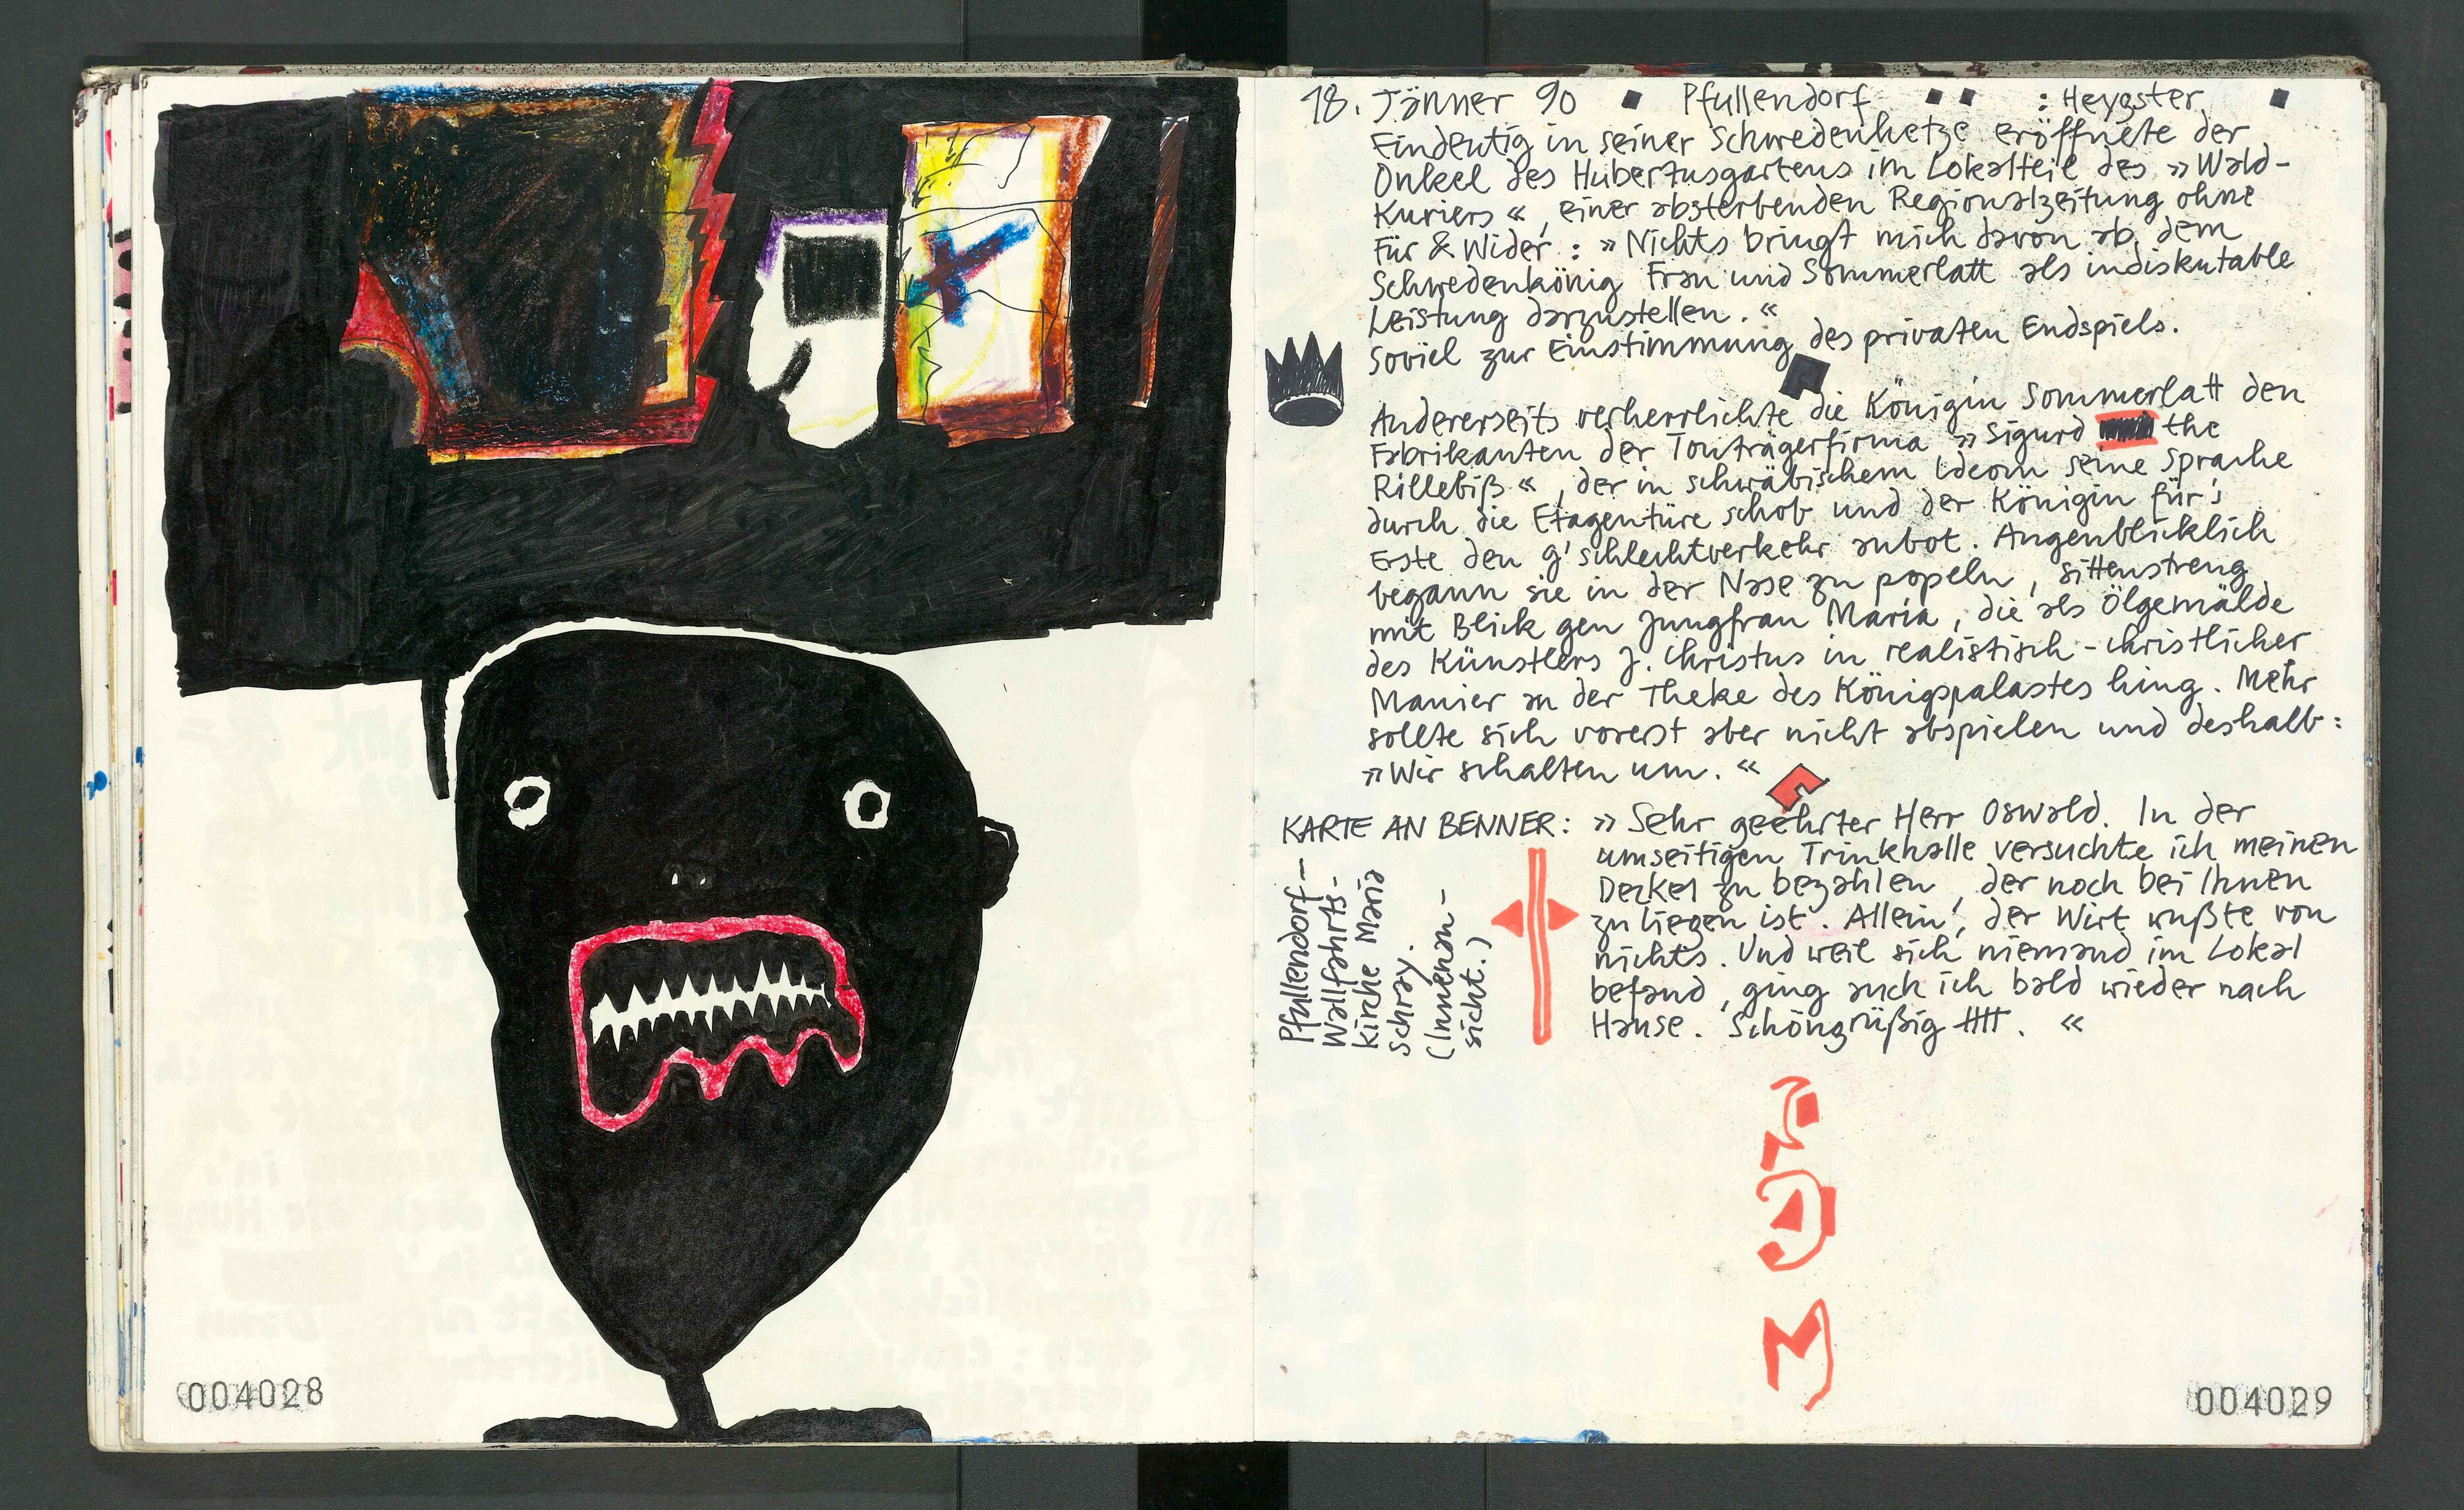 18. Jänner 90 Pfullendorf : Heygster
Eindeutig in seiner Schwedenhetze eröffnete der
Onkel des Hubertusgartens im Lokalteil des »Wald-
Kuriers«, einer absterbenden Regionalzeitung ohne
Für & Wider : »Nichts bringt mich davon ab, dem
Schwedenkönig Frau und Sommerlatt als indiskutable
Leistung darzustellen.«
Soviel zur Einstimmung des privaten Endspiels.
Andererseits verherrlichte die Königin Sommerlatt den
Fabrikanten der Tonträgerfirma »Sigurd the
Rillebiß«, der in schwäbischem Ideom seine Sprache
durch die Etagentüre schob und der Königin für's
Erste den g'schlechtverkehr anbot. Augenblicklich
begann sie in der Nase zu popeln, sittenstreng
mit Blick gen Jungfrau Maria, die als Ölgemälde
des Künstlers J. Christus in realistisch-christlicher
Manier an der Theke des Königspalastes hing. Mehr
sollte sich vorerst aber nicht abspielen und deshalb:
»Wir schalten um.«
KARTE AN BENNER: »Sehr geehrter Herr Oswald. In der
umseitigen Trinkhalle versuchte ich meinen
Deckel zu bezahlen, der noch bei Ihnen
zu liegen ist. Allein, der Wirt wußte von
nichts. Und weil sich niemand im Lokal
befand, ging auch ich bald wieder nach
Hause. Schöngrüßig .«
Pfullendorf—
Wallfahrts-
kirche Maria
Schray.
(Innenan-
sicht.)
004028
004029